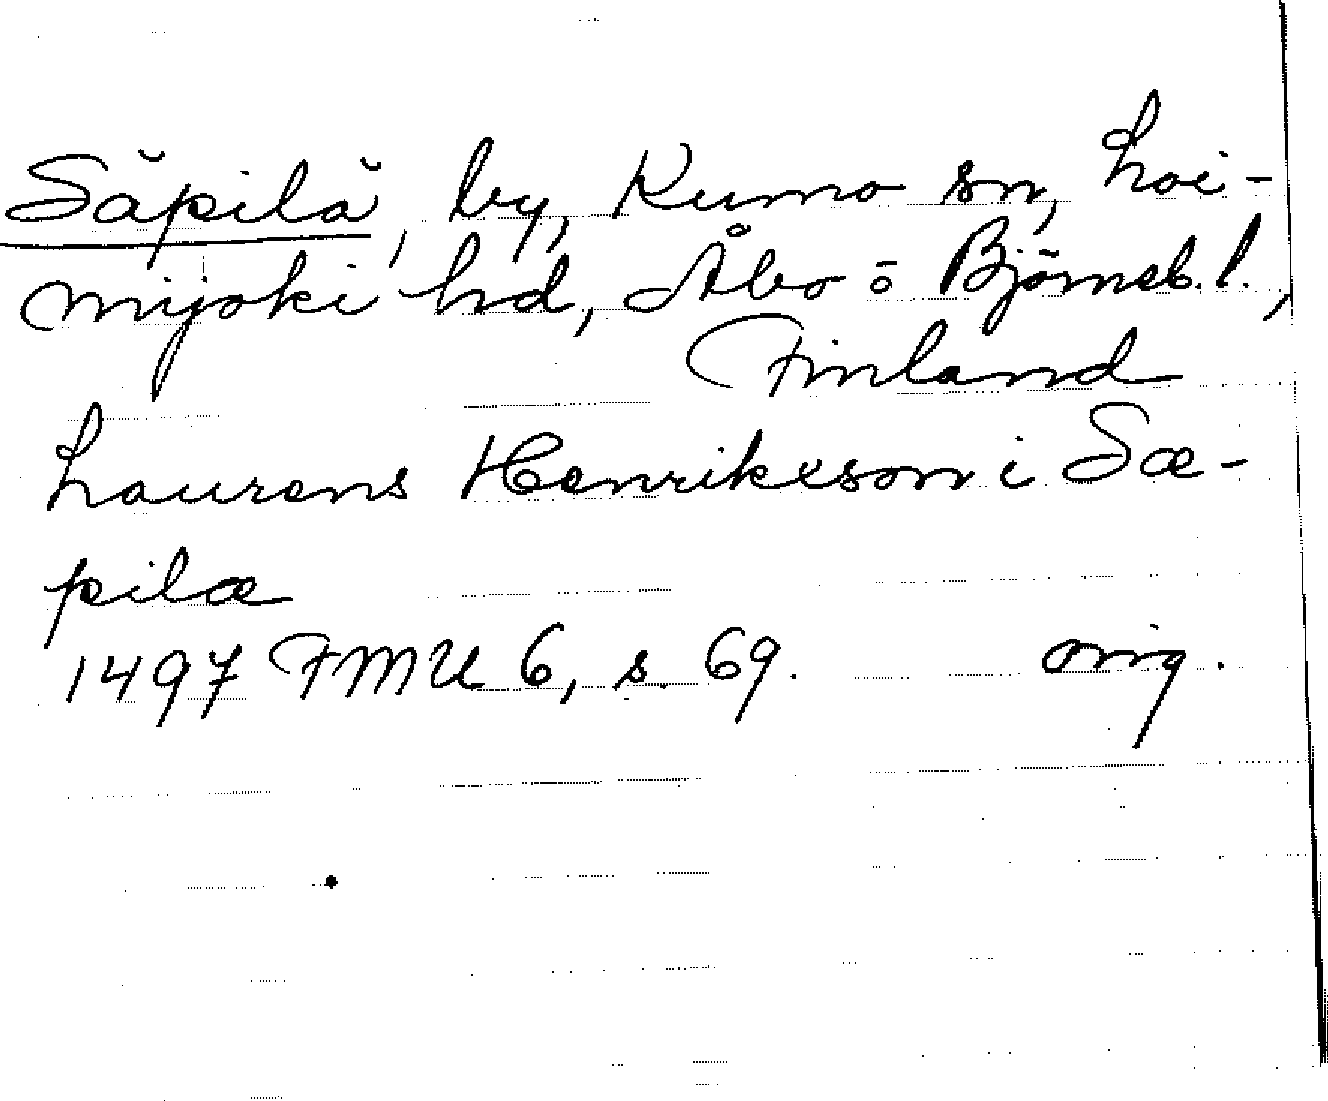 Säpilä, by, Kumo sn, Loi-
mijoki hd, Åbo o Björneb. l.,
Finland
Laurens Henrikxson i Sæ-
pilæ
1497 FMU 6, s. 69. orig.